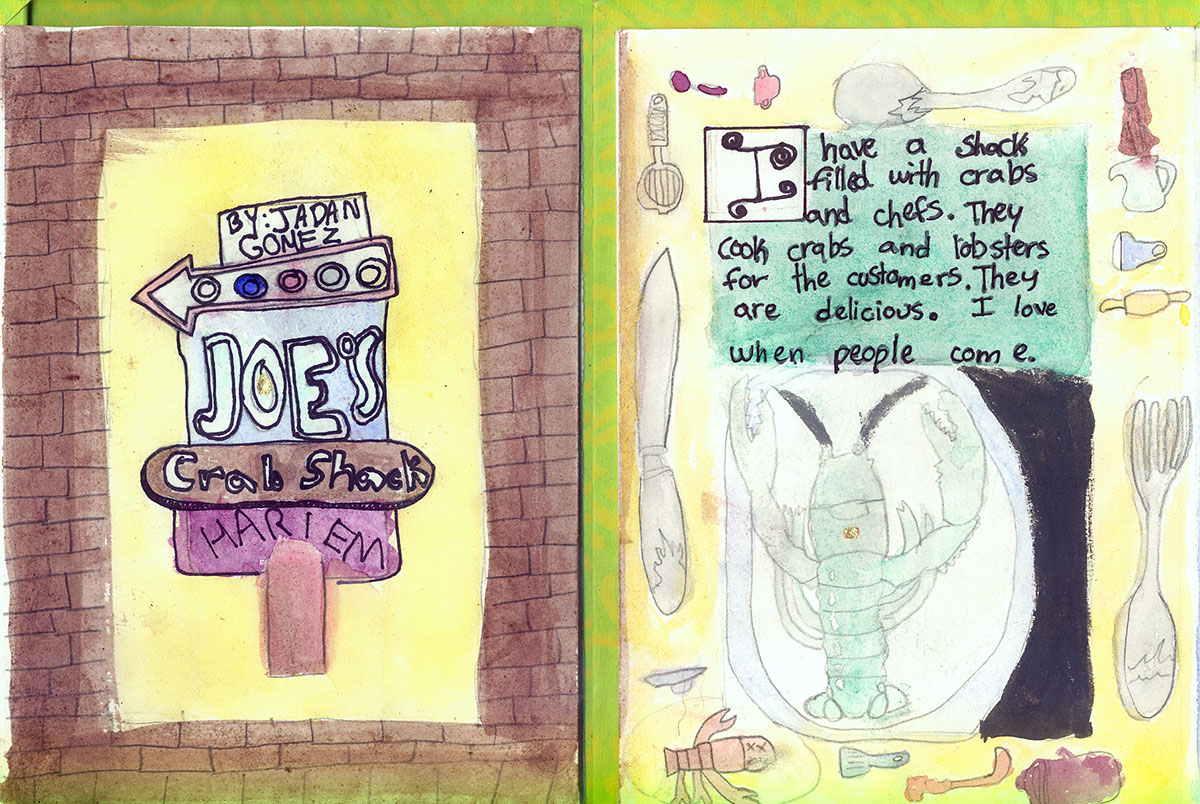 BY: JADAN
GOMEZ
JOE'S
Crab Shack
HARLEM
I have a shack
filled with crabs
and chefs. They
cook crabs and lobsters
for the customers. They
are delicious. I love
when people come.